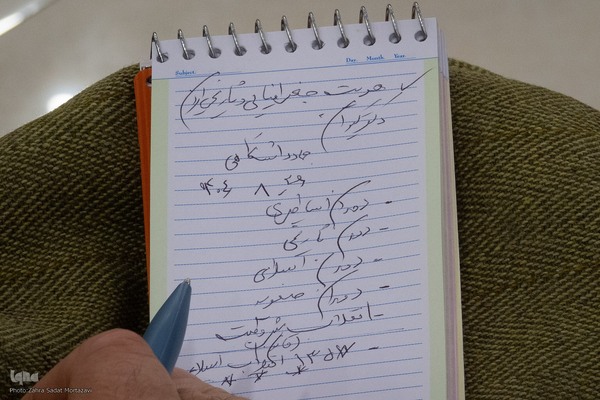 Subject: Day Month Year
هویت جغرافیایی و تاریخی ایران
دکتر
جهاددانشگاهی
- دوره اساطیری
- دوره تاریخی
- دوره اسلامی
- دوره صفویه
- انقلاب مشروطیت
- انقلاب اسلامی
iqna
Photo: Zahra Sadat Mortazavi